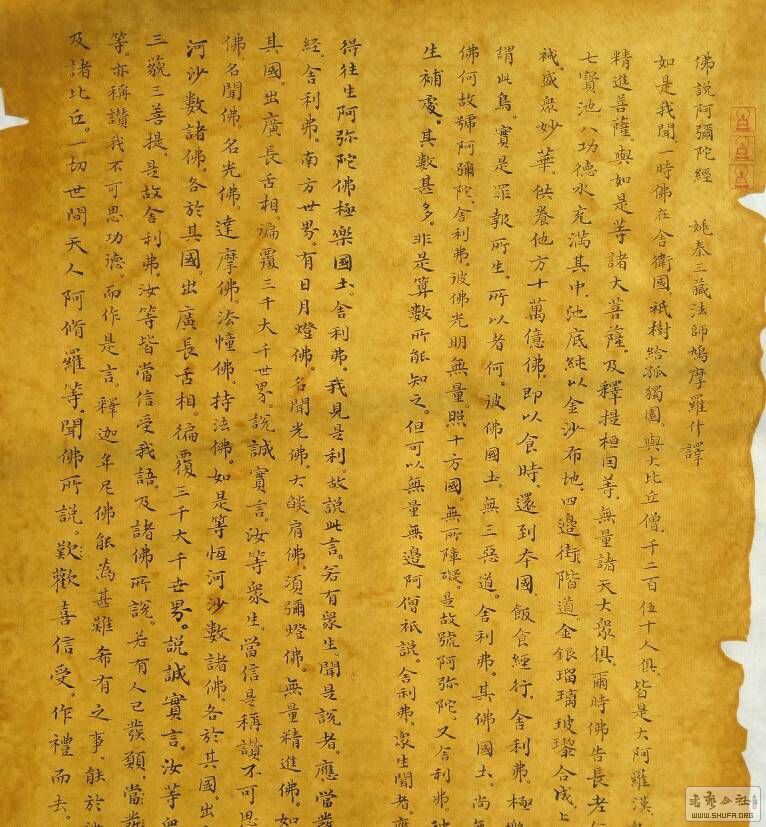 佛說阿彌陀經　姚秦三藏法師鳩摩羅什譯
如是我聞。一時佛在舍衛國。祇樹給孤獨園。與大比丘僧。千二百伍十人俱。皆是大阿羅漢。
精進菩薩。與如是等諸大菩薩。及釋提桓因等。無量諸天大眾俱。爾時。佛告長老
七寶池。八功德水。充滿其中。池底純以金沙布地。四邊街階道。金銀瑠璃玻瓈合成。上
裓。盛眾妙華。供養他方十萬億佛。即以食時。還到本國。飯食經行。舍利弗。極樂
謂此鳥。實是罪報所生。所以者何。彼佛國土。無三惡道。舍利弗。其佛國土。尚無
佛何故號阿彌陀。舍利弗。彼佛光明無量。照十方國。無所障礙。是故號阿弥陀。又舍利弗。彼
生補處。其數甚多。非是算數所能知之。但可以無量無邊阿僧祇說。舍利弗。眾生聞者。應
得往生阿弥陀佛極樂國土。舍利弗。我見是利。故說此言。若有眾生。聞是說者。應當發
經。舍利弗。南方世界。有日月燈佛。名聞光佛。大燄肩佛。須彌燈佛。無量精進佛。如
其國。出廣長舌相。徧覆三千大千世界。說誠實言。汝等眾生。當信是稱讚不可思
佛。名聞佛。名光佛。達摩佛。法幢佛。持法佛。如是等恆河沙數諸佛。各於其國。出
河沙數諸佛。各於其國。出廣長舌相。徧覆三千大千世界。說誠實言。汝等眾
三藐三菩提。是故舍利弗。汝等皆當信受我語。及諸佛所說。若有人已發願。當發
等。亦稱讚我不可思功德。而作是言。釋迦牟尼佛能為甚難希有之事。能於娑
及諸比丘。一切世間天人阿脩羅等。聞佛所說。歡喜信受。作禮而去。
書藝公社
WWW.SHUFA.ORG